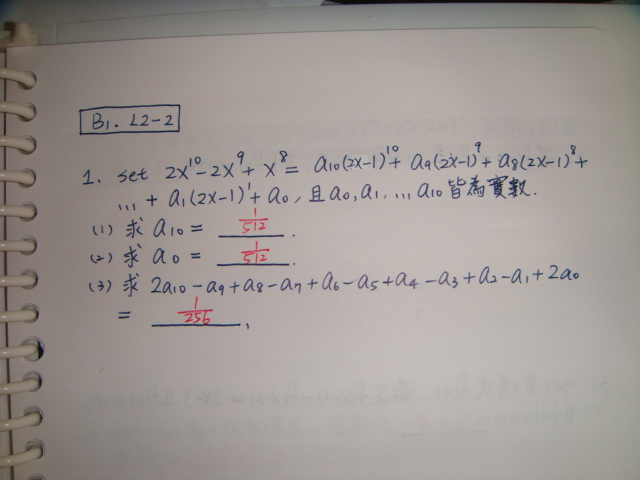 B1. L2-2
1. set 2x¹⁰-2x⁹+x⁸= a₁₀(2x-1)¹⁰+ a₉(2x-1)⁹+ a₈(2x-1)⁸+
... + a₁(2x-1)¹+a₀, 且a₀,a₁,...,a₁₀皆為實數.
(1) 求 a₁₀ = 1/512.
(2) 求 a₀ = 1/512.
(3) 求 2a₁₀-a₉+a₈-a₇+a₆-a₅+a₄-a₃+a₂-a₁+2a₀
= 1/256.